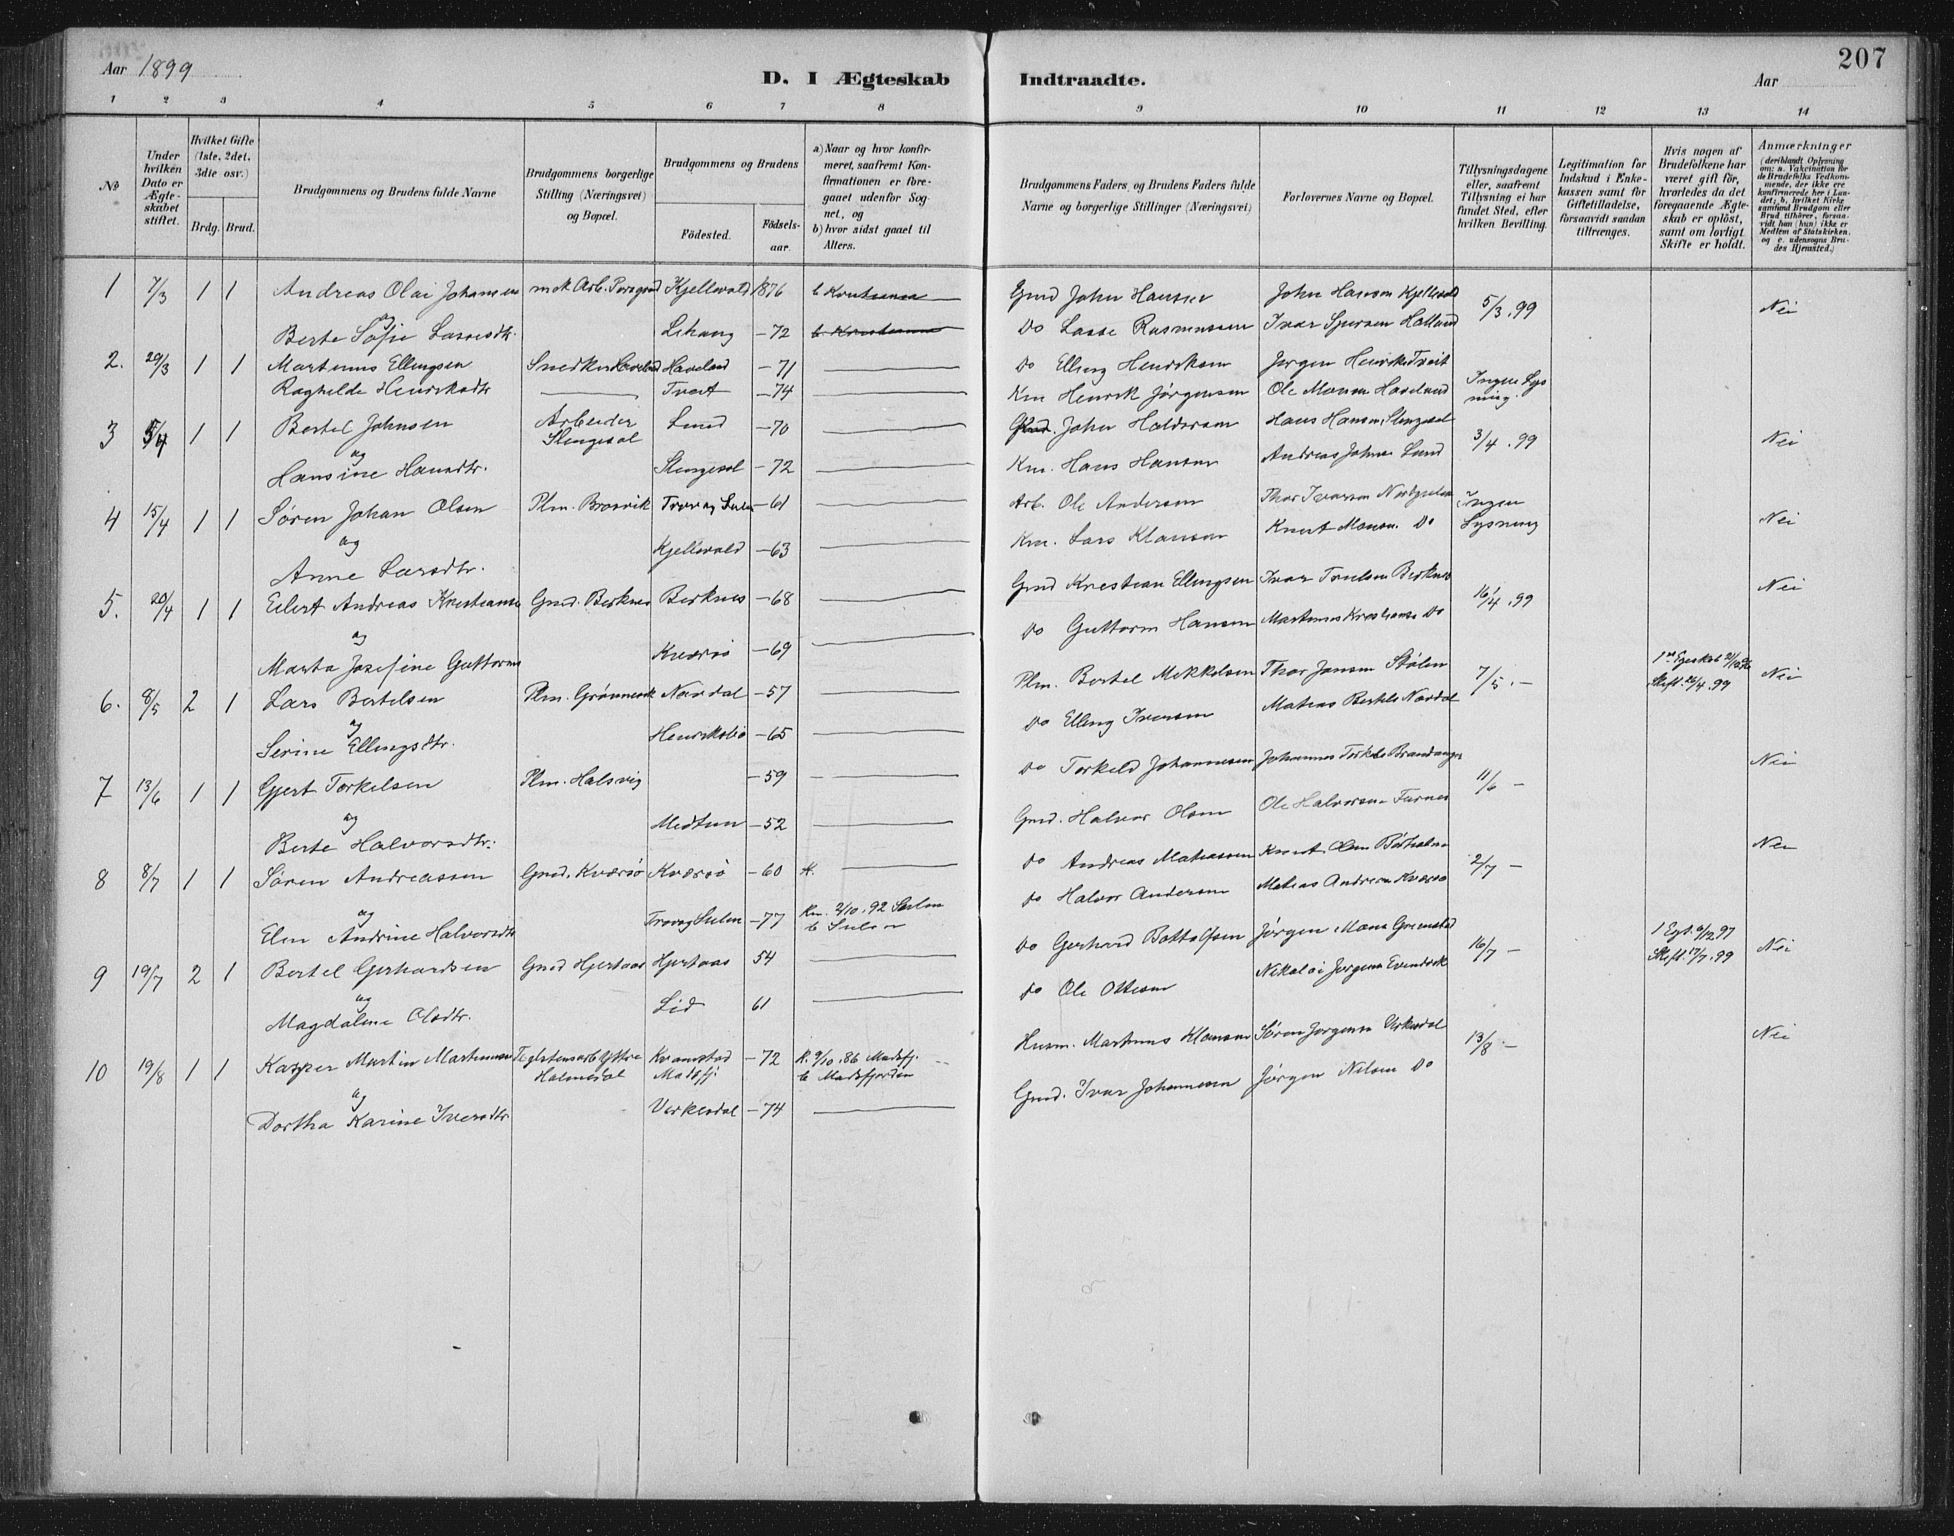 Aar 1899
D. I Ægteskab Indtraadte.
207
Aar
1 2 3 4 5 6 7 8 9 10 11 12 13 14
No
Under hvilken Dato er Ægteskabet stiftet.
Hvilket Gifte (1ste, 2det, 3die osv.)
Brdg. Brud.
Brudgommens og Brudens fulde Navne
Brudgommens borgerlige Stilling (Næringsvei) og Bopæl.
Brudgommens og Brudens
Födested. Födselsaar.
a) Naar og hvor konfirmeret, saafremt Konfirmationen er foregaaet udenfor Sognet, og
b) hvor sidst gaaet til Alters.
Brudgommens Faders, og Brudens Faders fulde Navne og borgerlige Stillinger (Næringsvei)
Forlovernes Navne og Bopæl.
Tillysningsdagene eller, saafremt Tillysning ei har fundet Sted, efter hvilken Bevilling.
Legitimation for Indskud i Enkekassen samt for Giftetilladelse, forsaavidt saadan tiltrænges.
Hvis nogen af Brudefolkene har været gift för, hvorledes da det foregaaende Ægteskab er oplöst, samt om lovligt Skifte er holdt.
Anmærkninger (deriblandt Oplysning om: a. Vakcination for de Brudefolks Vedkommende, der ikke ere konfirmerede her i Landet; b. hvilket Kirkesamfund Brudgom eller Brud tilhörer, forsaavidt han (hun) ikke er Medlem af Statskirken, og c. udensogns Brudes Hjemsted.)
1 7/3 1 1 Andreas Olai Johansen Kjellevold 1876 Gmd John Hansen John Hanson Kjellevold 5/3.99 Nei
og
Berte Sofie Lassesdtr. Lihaug -72 Do Lasse Rasmussen Ivar Holland
2. 29/3 1 1 Martinus Ellingsen Snedker Haveland Haveland -71 Do Elling Henriksen Jørgen Henriks Tveit
Raghilde Henriksdtr Tveit -74 Km Henrik Jørgensen Ole Monsen Haveland Ingen Lysning.
3 5/4 1 1 Bertel Johnsen Arbeider Stengesol Lund -70 John Haldorsen Hans Hansen Stengesol 3/4.99 Nei
og
Hansine Hansdtr. Stengesol -72 Km. Hans Hansen Andreas Johns Lund
4 15/4 1 1 Søren Johan Olsen Plm. Brosvik -61 Arb. Ole Andersen Thor Ivarson Ingen Lysning Nei
og
Anne Larsdtr. Kjellevold -63 Km. Lars Klausen Knut Monsen Do
5. 20/4 1 1 Eilert Andreas Kristiansen Gmd. Berknes Berknes -68 Gmd Kristian Ellingsen Ivar Truelsen Berknes 16/4.99 Nei
og
Marta Josefine Guttorms Kværsø -69 Do Guttorm Hansen Martinus Kristianson Do
6. 8/5 2 1 Lars Bertelsen Plm. Grønnevik Nordal -57 Plm. Bertel Mikkelsen Thor Jansen Stølen 7/5.- Skift. 26/4.99 Nei
og
Serine Ellingsdtr. Henriksbø -65 Do Elling Iversen Matias Bertels Nordal
7 13/6 1 1 Gjert Torkelsen Plm. Halsvig -59 Do Torkeld Johannesen Johannes Torkels Brandanger 11/6 - Nei
og
Berte Halvorsdtr. Midtun -52 Gmd. Halvor Olsen Ole Halvorsen Furnes
8 8/7 1 1 Søren Andreassen Gmd. Kværsø Kværsø -60 Do Andreas Mathiassen Knut Olsen 2/7 - Nei
og
Elen Andrine Halvorsdtr -77 Kn. 2/10.92 Sulen
b Sulen Do Halvor Andersen Matias Andreas Kværsø
9 19/7 2 1 Bertel Gerhardsen Gmd Hjertaas Hjertaas 54 Do Gerhard Bottolfsen Jørgen Mons Grimstad 16/7 - Skift. 17/7.99 Nei
og
Magdalene Olsdtr. Lid 61 Do Ole Ottesen Nikolai Jørgensen Evindvik
10 19/8 1 1 Kasper Martin Martinussen Teglstensarb Yttre Holmedal Kvamstad Masfj. -72 K. 3/10.86 Masfj.
b Masfjorden Husm. Martinus Klausen Søren Jørgensen Verkesdal 13/8 - Nei
og
Dortha Karine Iversdtr. Verkesdal -74 Gmd. Ivar Johannesen Jørgen Nilsen Do